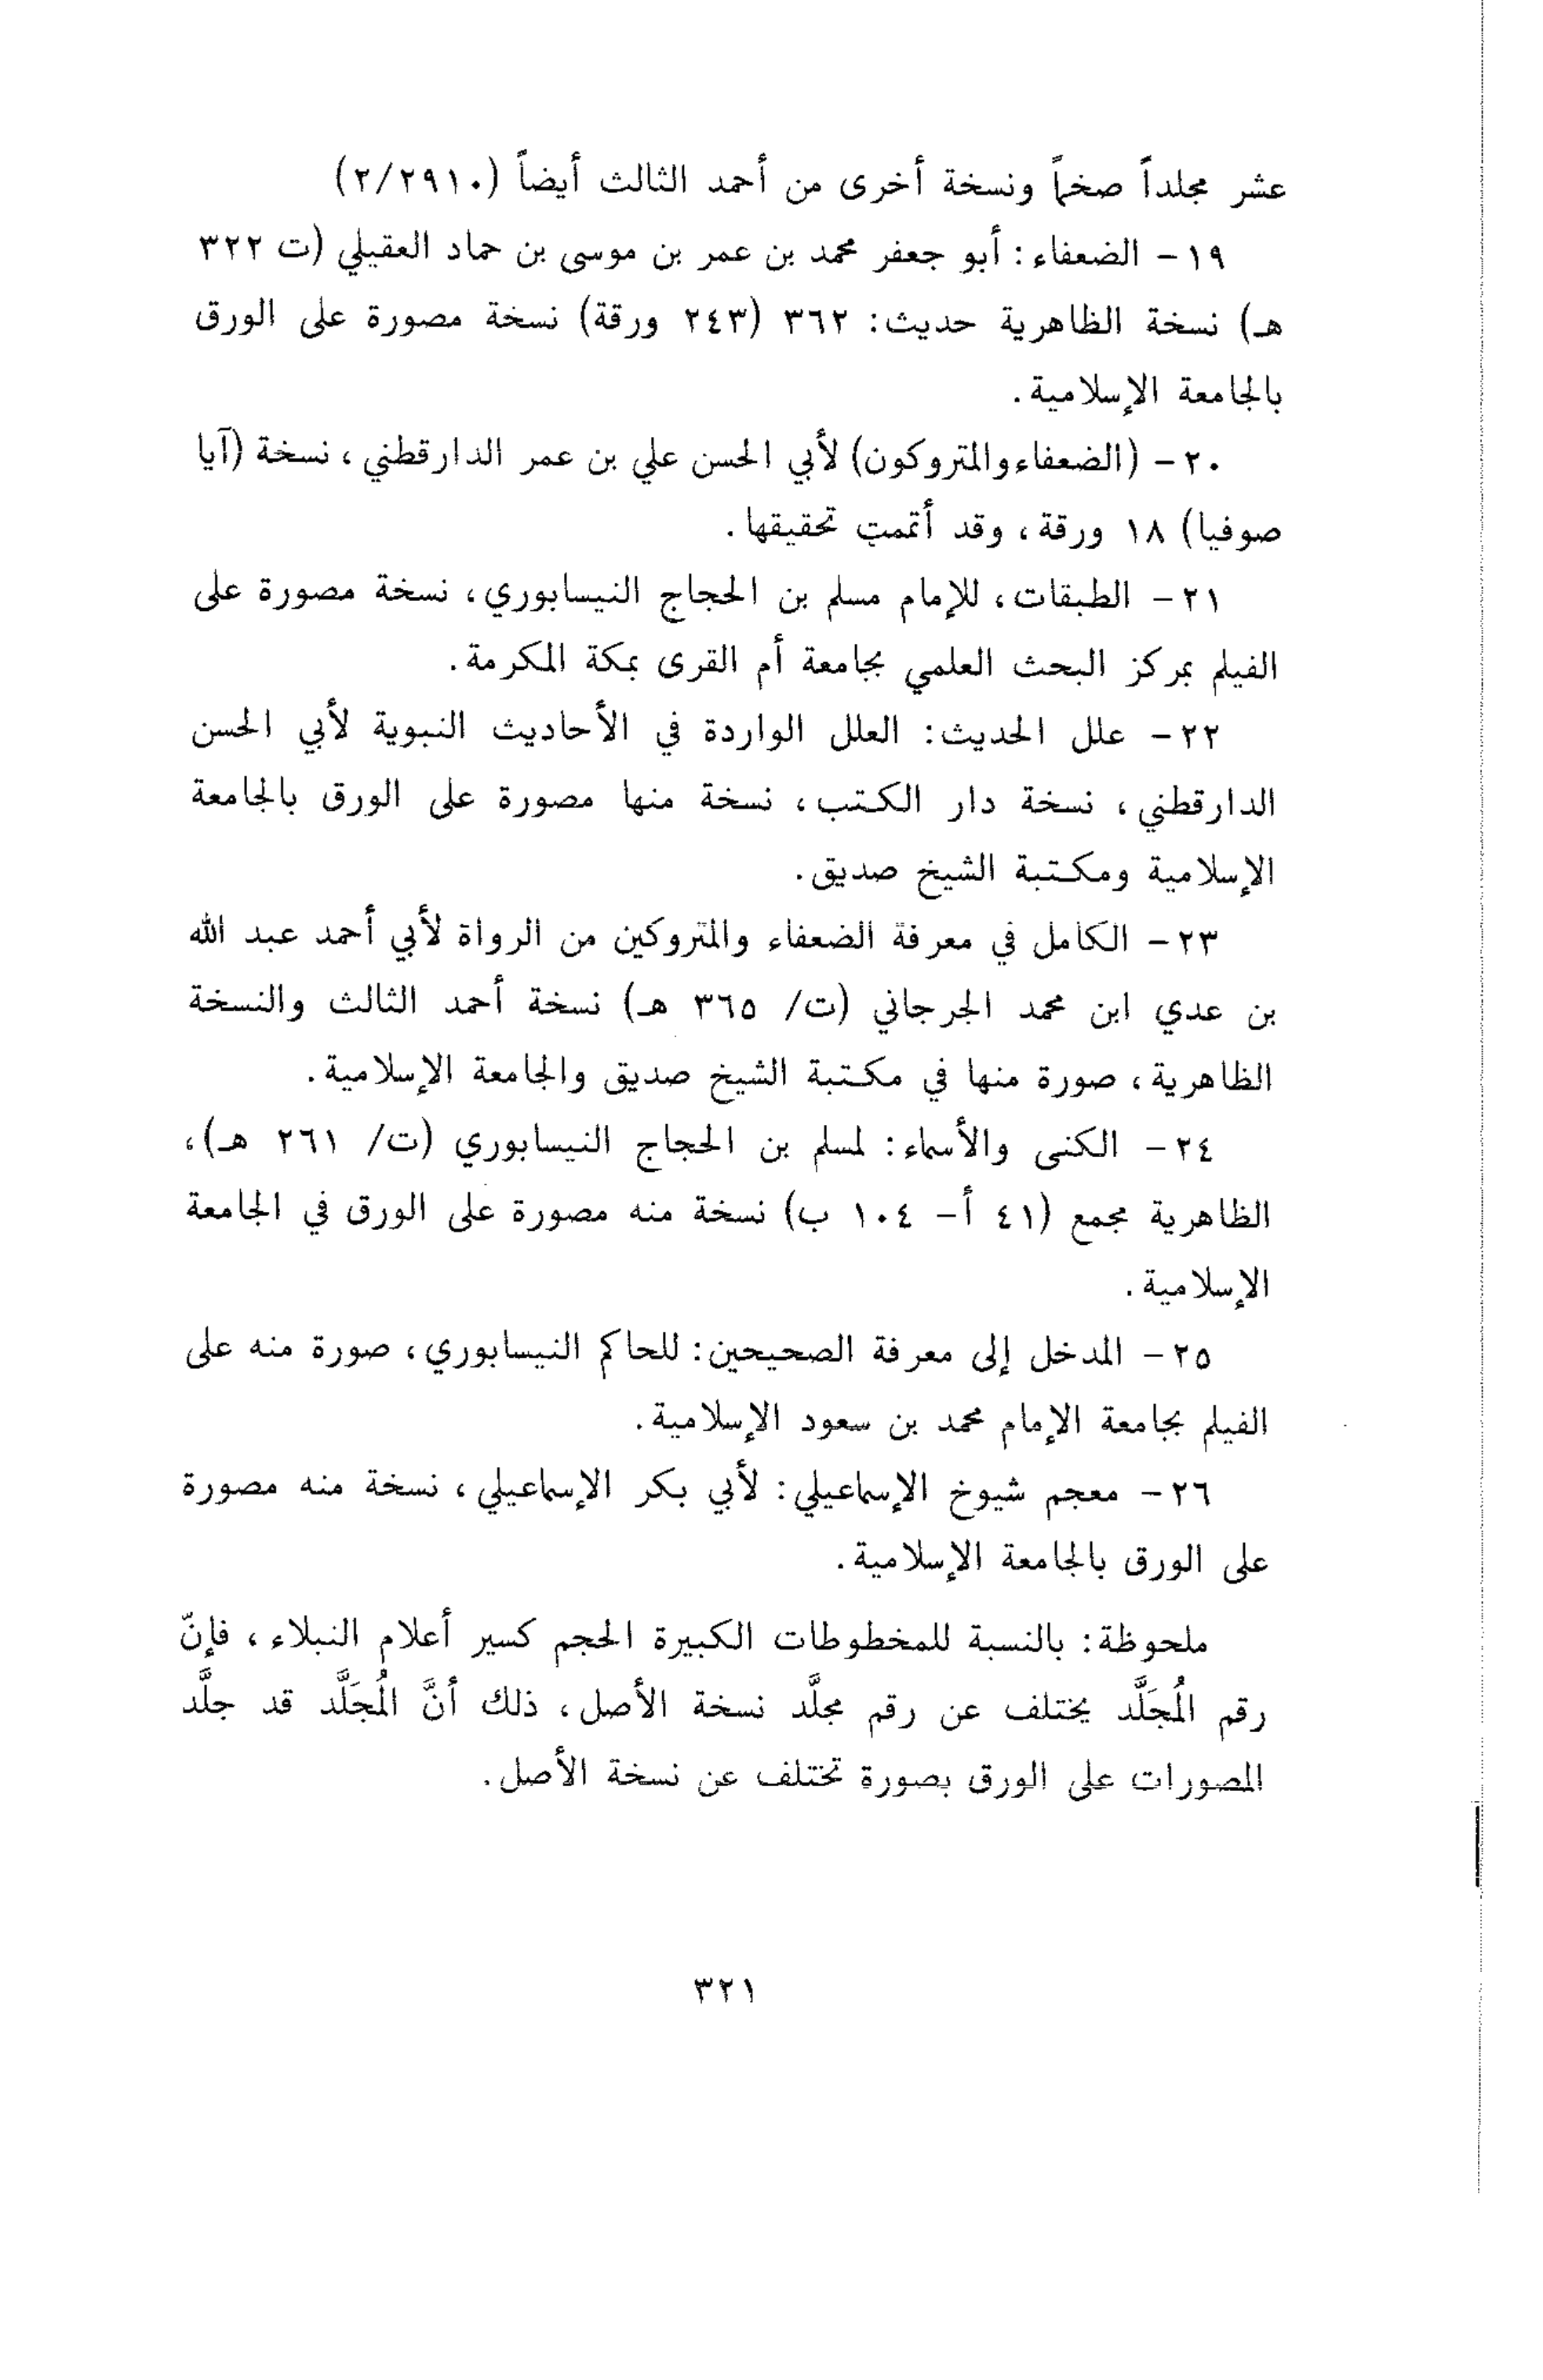 عشر مجلداً صخماً ونسخة أخرى من أحمد الثالث أيضاً (٢/٢٩١٠)
١٩ - الضعفاء: أبو جعفر محمد بن عمر بن موسى بن حماد العقيلي (ت ٣٢٢
هـ) نسخة الظاهرية حديث: ٣٦٢ (٢٤٣ ورقة) نسخة مصورة على الورق
بالجامعة الإسلامية.
٢٠ - (الضعفاء والمتروكون) لأبي الحسن علي بن عمر الدارقطني، نسخة (آيا
صوفيا) ١٨ ورقة، وقد أتممت تحقيقها.
٢١ - الطبقات، للإمام مسلم بن الحجاج النيسابوري، نسخة مصورة على
الفيلم بمركز البحث العلمي بجامعة أم القرى بمكة المكرمة.
٢٢ - علل الحديث: العلل الواردة في الأحاديث النبوية لأبي الحسن
الدارقطني، نسخة دار الكتب، نسخة منها مصورة على الورق بالجامعة
الإسلامية ومكتبة الشيخ صديق.
٢٣ - الكامل في معرفة الضعفاء والمتروكين من الرواة لأبي أحمد عبد الله
بن عدي ابن محمد الجرجاني (ت/ ٣٦٥ هـ) نسخة أحمد الثالث والنسخة
الظاهرية، صورة منها في مكتبة الشيخ صديق والجامعة الإسلامية.
٢٤ - الكنى والأسماء: لمسلم بن الحجاج النيسابوري (ت/ ٢٦١ هـ)،
الظاهرية مجمع (٤١ أ - ١٠٤ ب) نسخة منه مصورة على الورق في الجامعة
الإسلامية.
٢٥ - المدخل إلى معرفة الصحيحين: للحاكم النيسابوري، صورة منه على
الفيلم بجامعة الإمام محمد بن سعود الإسلامية.
٢٦ - معجم شيوخ الإسماعيلي: لأبي بكر الإسماعيلي، نسخة منه مصورة
على الورق بالجامعة الإسلامية.
ملحوظة: بالنسبة للمخطوطات الكبيرة الحجم كسير أعلام النبلاء، فإنّ
رقم المُجَلَّد يختلف عن رقم مجلَّد نسخة الأصل، ذلك أنَّ المُجَلَّد قد جلَّد
المصورات على الورق بصورة تختلف عن نسخة الأصل.
٣٢١